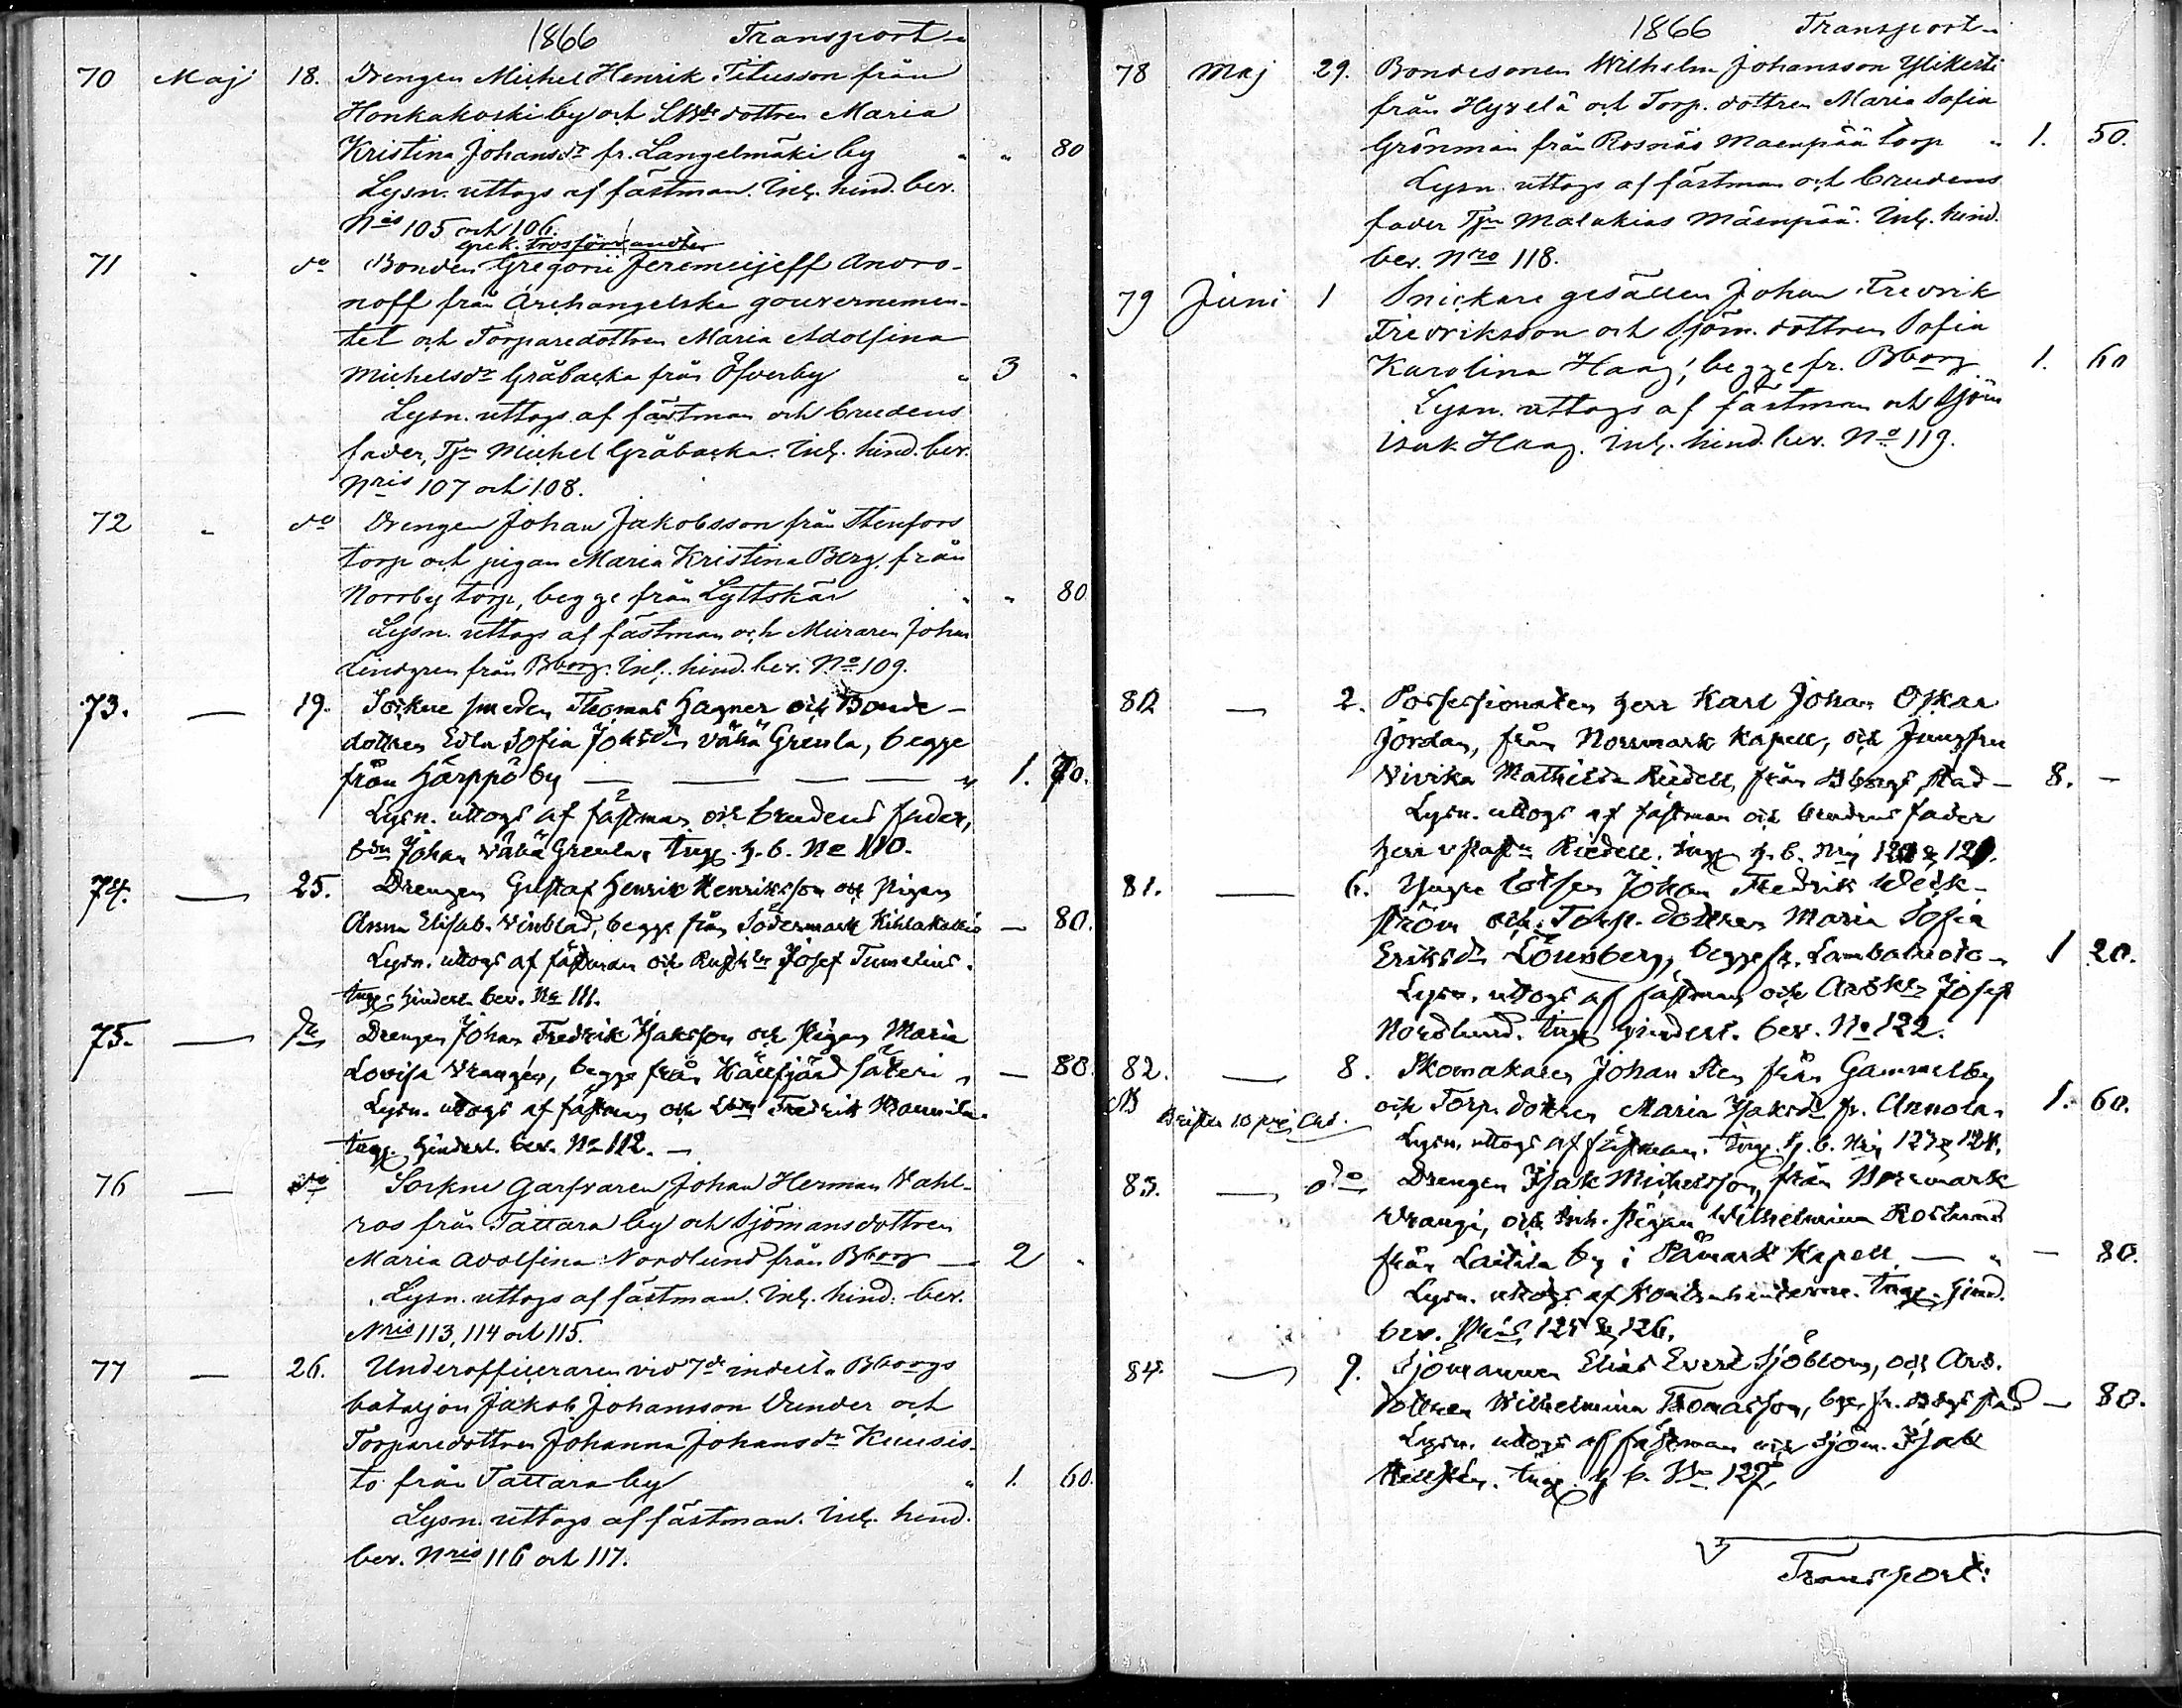 1866 Transport
70 Maj 18. Drengen Michel Henrik Titusson från
Honkakoski by och dottren Maria
Kristina Johansdr fr. Langelmäki by " " 80
Lysn. uttogs af fästman. Inl. hind. bev.
Nris 105 och 106.
grek. trosförvandter
71 " do Bonden Gregorii Jeremeijeff Andro-
noff från Archangelska gouvernemen-
tet och Torparedottren Maria Adolfina
Michelsdr Gråbacka från Öfverby " 3 "
Lysn. uttogs af fästman och brudens
fader, Tpn Michel Gråbacka. Inl. hind. bev.
Nris 107 och 108.
72 " do Drengen Johan Jakobsson från Stenfors
torp och pigan Maria Kristina Berg från
Norrby torp, begge från Lyttskär " " 80
Lysn. uttogs af fästman och Muraren Johan
Lindgren från Bborg. Inl. hind. bev. No 109.
73. — 19. Sockne smeden Thomas Hagner och Bonde-
dottren Edla Sofia Johsdr Vähä Greula, begge
från Härpö by — — — — " 1. 70.
Lysn. uttogs af fästman och brudens fader,
bdn Johan Vähä Greula. Ingg. h. b. No 110.
74. — 25. Drengen Gustaf Henrik Henriksson och Pigan
Anna Elisab. Vinblad, begge från Södermark — 80.
Lysn. uttogs af fästman och Josef Tumelius.
Ingg. hinderl. bev. No 111.
75. — do Drengen Johan Fredrik Isaksson och Pigan Maria
Lovisa Vrangén, begge från Hällfjärd säteri " — 80.
Lysn. uttogs af fästman och Fredrik
Ingg. hinderl. bev. No 112. —
76 — do Sockne Garfvaren Johan Herman Vahl-
ros från Tattara by och Sjömansdottren
Maria Adolfina Nordlund från Bborg — 2 "
Lysn. uttogs af fästman. Inl. hind. bev.
Nris 113, 114 och 115.
77 — 26. Underofficeraren vid 7de indelta Bborgs
bataljon Jakob Johansson Dunder och
Torparedottren Johanna Johansdr Kuusis-
to från Tattara by " 1. 60.
Lysn. uttogs af fästman. Inl. hind.
bev. Nris 116 och 117.
1866 Transport
78 Maj 29. Bondesonen Wilhelm Johansson Ylikerti
från Hyvelä och Torp. dottren Maria Sofia
Grönman från Rosnäs Mäenpää torp " 1. 50.
Lysn. uttogs af fästman och brudens
fader Tpn Malakias Mäenpää. Inl. hind.
bev. Nro 118.
79 Juni 1 Snickare gesällen Johan Fredrik
Fredriksson och Sjöm. dottren Sofia
Karolina Haag, begge fr. Bborg 1. 60
Lysn. uttogs af fästman och Sjöm
Isak Haag. Inl. hind. bev. No 119.
80 — 2. Possessionaten Herr Karl Johan Oskar
Jordan, från Norrmark Kapell, och Jungfru
Vivika Mathilda Riedell, från Bborgs stad — 8. —
Lysn. uttogs af fästman och brudens fader
Herr Riedell. Ingg. h. b. Nris 120 & 121.
81. — 6. Yngre lotsen Johan Fredrik Weck-
ström och Torp. dottren Maria Sofia
Eriksdr Lönnberg, begge fr. 1 20.
Lysn. uttogs af fästman och Josef
Nordlund. Ingg. hinderl. bev. No 122.
82. — 8. Skomakaren Johan Sten från Gammelby
och Torp. dottren Maria Isaksdr fr. Annola. 1. 60.
Lysn. uttogs af fästman. Ingg. h. b. Nris 123 & 124.
83. — do Drengen Isak Michelsson, från Norrmark
Vrangi, och Inh. Pigan Wilhelmina Roslund
från Laitila by i Påmark Kapell — " — 80.
Lysn. uttogs af Ingg. hind.
bev. Nris 125 & 126.
84. — 9. Sjömannen Elias Evert Sjöblom, och Arb.
dottren Wilhelmina Thomasson, bge. fr. Bbgs stad — 80.
Lysn. uttogs af fästman och Sjöm. Isak
Hellsten. Ingg. h. b. No 127.
Transport: